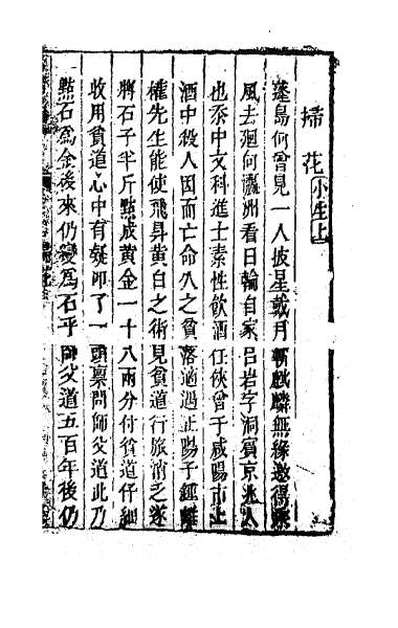 掃花 小生上
蓬島何曾見一人披星戴月斬麒麟無緣邀得
風去迴向瀛洲看日輪自家呂岩字洞賓京兆人
也忝中文科進士素性飲酒任俠曾于咸陽市上
酒中殺人因而亡命久之貧落適遇正陽子鍾離
權先生能使飛昇黃白之術見貧道行旅消乏遂
將石子半斤點成黃金一十八兩分付貧道仔細
收用貧道心中有疑叩了一頭稟問師父道此乃
點石為金後來仍變為石乎師父道五百年後仍